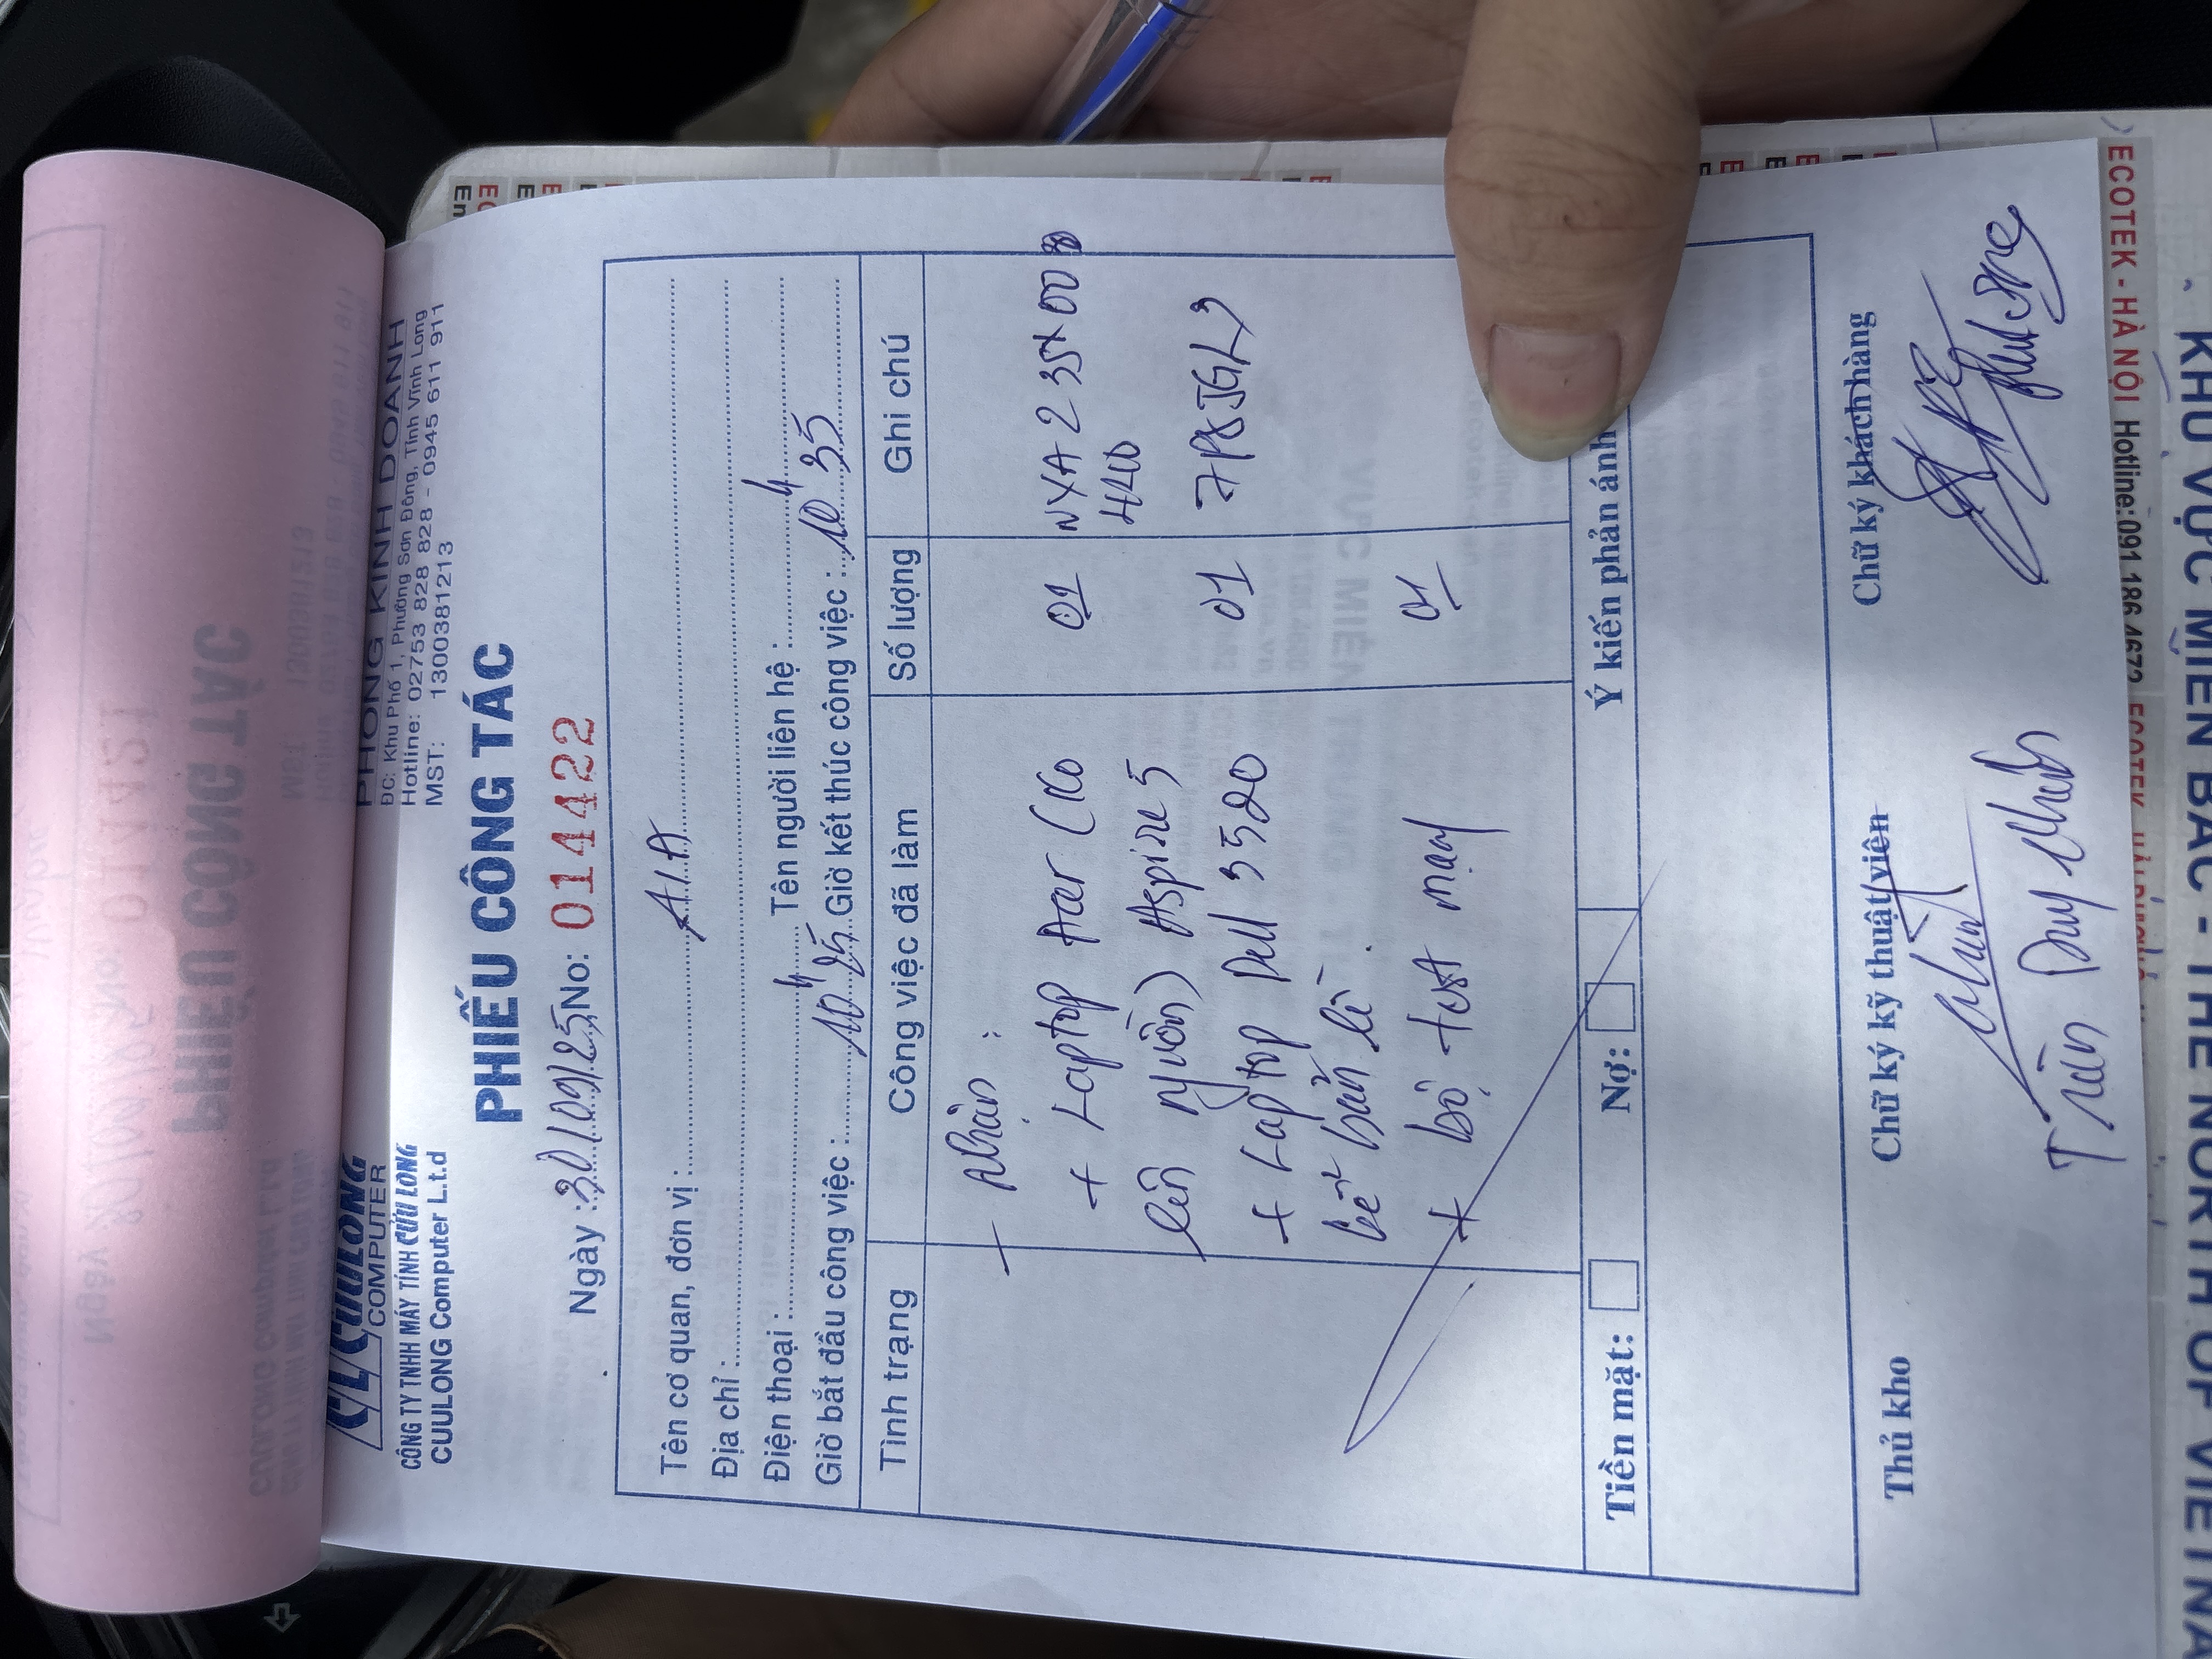 CUULONG
COMPUTER
CÔNG TY TNHH MÁY TÍNH CỬU LONG
CUULONG Computer L.t.d
PHÒNG KINH DOANH
ĐC: Khu Phố 1, Phường Sơn Đông, Tỉnh Vĩnh Long
Hotline: 02753 828 828 - 0945 611 911
MST: 1300381213
PHIẾU CÔNG TÁC
Ngày : 30/09/25 No: 014422
Tên cơ quan, đơn vị : A.I.A
Địa chỉ :
Điện thoại : Tên người liên hệ :
Giờ bắt đầu công việc : 10h25 Giờ kết thúc công việc : 10h35
Tình trạng Công việc đã làm Số lượng Ghi chú
- Nhận :
+ Laptop Acer (ko 01
lên nguồn) Aspire 5
+ Laptop Dell 3520 01 7P8JGL3
bể bản lề.
+ bộ test mạng 01
Tiền mặt: Nợ: Ý kiến phản ánh
Thủ kho Chữ ký kỹ thuật viên Chữ ký khách hàng
Trần Duy Nhân
ECOTEK - HÀ NỘI Hotline: 091 186 4672
KHU VỰC MIỀN BẮC - THE NORTH OF VIETNA